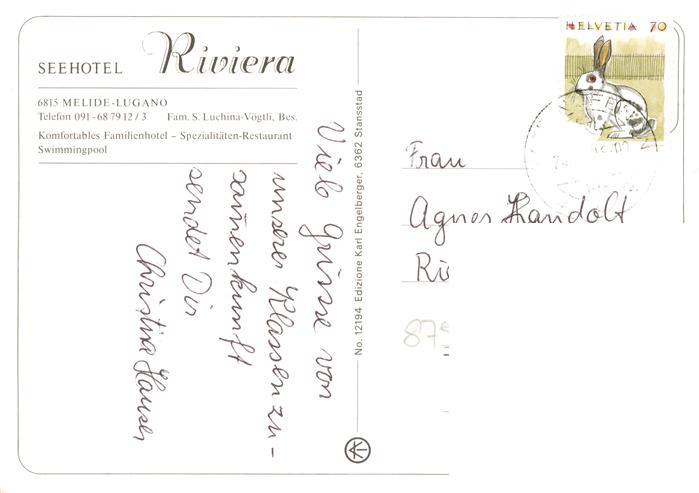 SEEHOTEL Riviera
6815 MELIDE-LUGANO
Telefon 091-68 79 12 / 3 Fam. S. Luchina-Vögtli, Bes.
Komfortables Familienhotel – Spezialitäten-Restaurant
Swimmingpool
Viele Grüsse von
unserer Klassenzu-
samenkunft
sendet Dir
Christina Hauser
No. 12194 Edizione Karl Engelberger, 6362 Stansstad
HELVETIA 70
Frau
Agnes Landolt
Ri
875